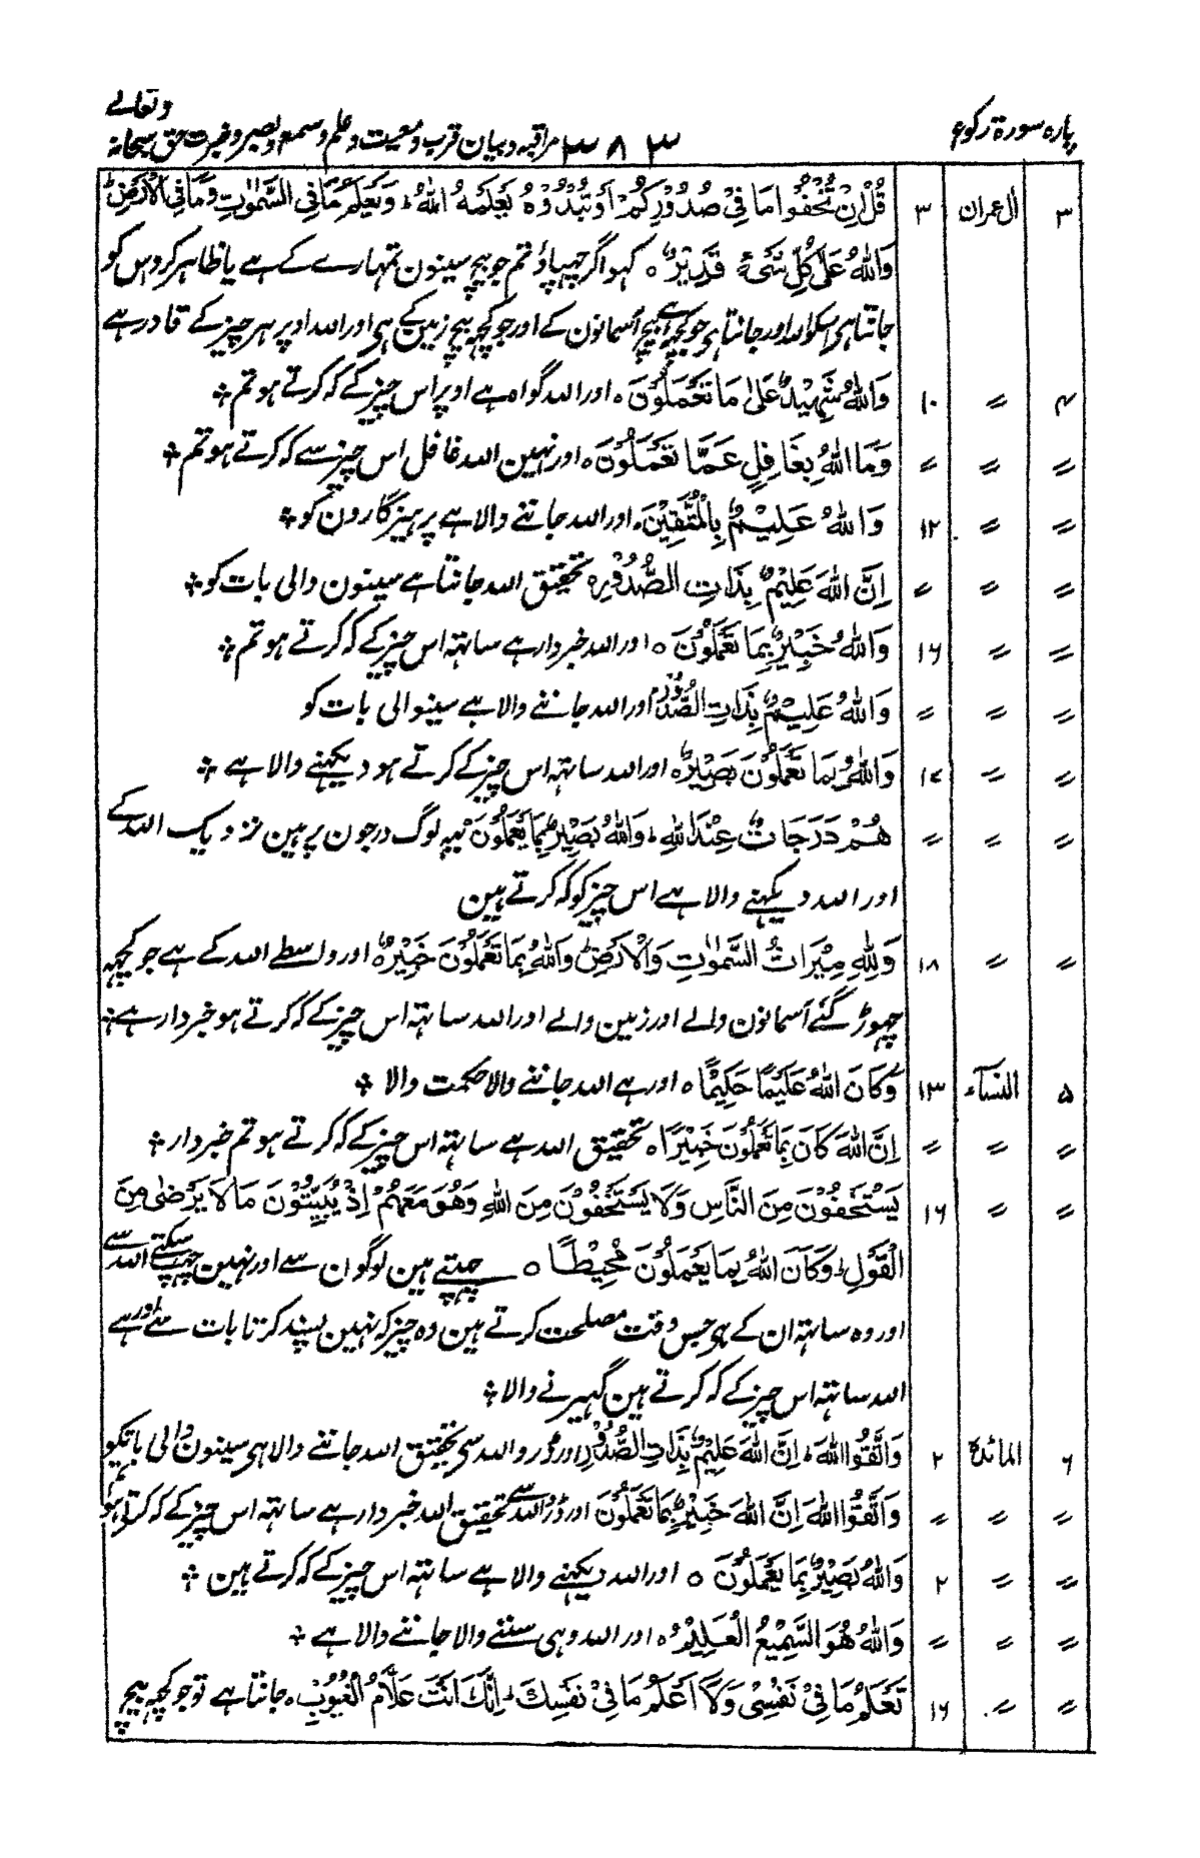 پارہ سورۃ رکوع ۳۸۳ مراقبہ و بیان قرب و معیت و علم و سمع و بصر و خبرت حق سبحانہ وتعالے
۳ ال عمران ۳ قُلْ اِنْ تُخْفُوْا مَا فِیْ صُدُوْرِكُمْ اَوْ تُبْدُوْهُ یَعْلَمْهُ اللّٰهُ ؕ وَیَعْلَمُ مَا فِی السَّمٰوٰتِ وَمَا فِی الْاَرْضِ ؕ
وَاللّٰهُ عَلٰی كُلِّ شَیْءٍ قَدِیْرٌ ۝ کہو اگر چہپاؤ تم جو بیچ سینون تمہارے کے ہے یا ظاہر کرو اس کو
جانتا ہی اسکو اللہ اور جانتا ہی جو کچہہ بیچ آسمانون کے اور جو کچہہ بیچ زمین کے ہی اور اللہ اوپر ہر چیز کے قادر ہے
۴ 〃 ۱۰ وَاللّٰهُ شَهِیْدٌ عَلٰی مَا تَعْمَلُوْنَ ۝ اور اللہ گواہ ہے اوپر اس چیز کے کہ کرتے ہو تم ؞
〃 〃 〃 وَمَا اللّٰهُ بِغَافِلٍ عَمَّا تَعْمَلُوْنَ ۝ اور نہین اللہ غافل اس چیز سے کہ کرتے ہو تم ؞
〃 〃 ۱۲ وَاللّٰهُ عَلِیْمٌ بِالْمُتَّقِیْنَ ۝ اور اللہ جاننے والا ہے پرہیزگارون کو ؞
〃 〃 〃 اِنَّ اللّٰهَ عَلِیْمٌ بِذَاتِ الصُّدُوْرِ ۝ تحقیق اللہ جانتا ہے سینون والی بات کو ؞
〃 〃 ۱۶ وَاللّٰهُ خَبِیْرٌ بِمَا تَعْمَلُوْنَ ۝ اور اللہ خبردار ہے ساتہہ اس چیز کے کہ کرتے ہو تم ؞
〃 〃 〃 وَاللّٰهُ عَلِیْمٌ بِذَاتِ الصُّدُوْرِ اور اللہ جاننے والا ہے سینو والی بات کو
〃 〃 ۱۷ وَاللّٰهُ بِمَا تَعْمَلُوْنَ بَصِیْرٌ ۝ اور اللہ ساتہہ اس چیز کے کرتے ہو دیکہنے والا ہے ؞
〃 〃 〃 هُمْ دَرَجَاتٌ عِنْدَ اللّٰهِ ؕ وَاللّٰهُ بَصِیْرٌ بِمَا یَعْمَلُوْنَ یہہ لوگ درجون پر ہین نزدیک اللہ کے
اور اللہ دیکہنے والا ہے اس چیز کو کہ کرتے ہین
〃 〃 ۱۸ وَلِلّٰهِ مِیْرَاثُ السَّمٰوٰتِ وَالْاَرْضِ ؕ وَاللّٰهُ بِمَا تَعْمَلُوْنَ خَبِیْرٌ ۝ اور واسطے اللہ کے ہے جو کچہہ
چہوڑ گئے آسمانون والے اور زمین والے اور اللہ ساتہہ اس چیز کے کہ کرتے ہو خبردار ہے ؞
۵ النسآء ۱۳ وَكَانَ اللّٰهُ عَلِیْمًا حَكِیْمًا ۝ اور ہے اللہ جاننے والا حکمت والا ؞
〃 〃 〃 اِنَّ اللّٰهَ كَانَ بِمَا تَعْمَلُوْنَ خَبِیْرًا ۝ تحقیق اللہ ہے ساتہہ اس چیز کے کہ کرتے ہو تم خبردار ؞
〃 〃 ۱۶ یَسْتَخْفُوْنَ مِنَ النَّاسِ وَلَا یَسْتَخْفُوْنَ مِنَ اللّٰهِ وَهُوَ مَعَهُمْ اِذْ یُبَیِّتُوْنَ مَا لَا یَرْضٰی مِنَ
الْقَوْلِ ؕ وَكَانَ اللّٰهُ بِمَا یَعْمَلُوْنَ مُحِیْطًا ۝ چہپتے ہین لوگون سے اور نہین چہپ سکتے اللہ سے
اور وہ ساتہہ ان کے ہی جس وقت مصلحت کرتے ہین وہ چیز کہ نہین پسند کرتا بات سے اور ہے
اللہ ساتہہ اس چیز کے کہ کرتے ہین گہیرنے والا ؞
۶ المائدۃ ۲ وَاتَّقُوا اللّٰهَ ؕ اِنَّ اللّٰهَ عَلِیْمٌ بِذَاتِ الصُّدُوْرِ اور ڈرو اللہ سی تحقیق اللہ جاننے والا ہی سینون والی باتکو
〃 〃 〃 وَاتَّقُوا اللّٰهَ اِنَّ اللّٰهَ خَبِیْرٌ بِمَا تَعْمَلُوْنَ اور ڈرو اللہ سے تحقیق اللہ خبردار ہے ساتہہ اس چیز کے کہ کرتے ہو تم
〃 〃 ۲ وَاللّٰهُ بَصِیْرٌ بِمَا یَعْمَلُوْنَ ۝ اور اللہ دیکہنے والا ہے ساتہہ اس چیز کے کہ کرتے ہین ؞
〃 〃 〃 وَاللّٰهُ هُوَ السَّمِیْعُ الْعَلِیْمُ ۝ اور اللہ وہی سننے والا جاننے والا ہے ؞
〃 〃 ۱۶ تَعْلَمُ مَا فِیْ نَفْسِیْ وَلَا اَعْلَمُ مَا فِیْ نَفْسِكَ ؕ اِنَّكَ اَنْتَ عَلَّامُ الْغُیُوْبِ ۝ جانتا ہے تو جو کچہہ بیچ